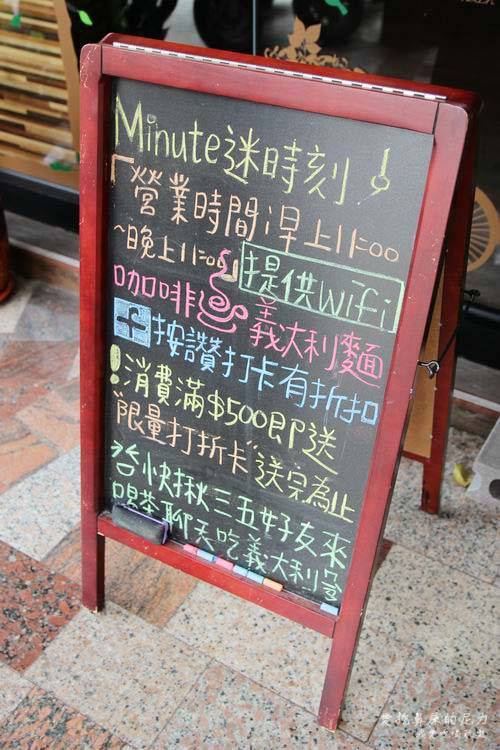 Minute迷時刻
「營業時間早上11:00
~晚上11:00」提供wifi
咖啡 義大利麵
f按讚打卡有折扣
!消費滿$500即送
"限量打折卡"送完為止
台快揪三五好友來
喝茶聊天吃義大利麵